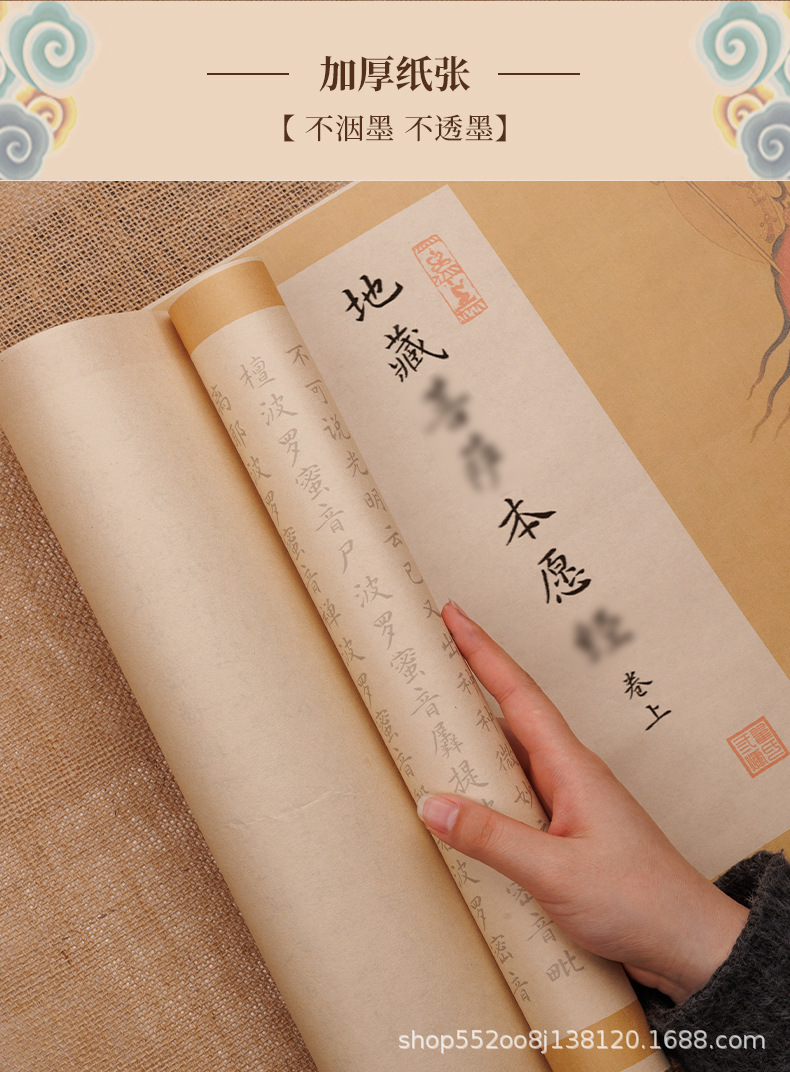 加厚纸张
【 不洇墨 不透墨】
地藏
本愿
卷上
不可说光明云已又出种种微妙
檀波罗蜜音尸波罗蜜音羼提
蜜音毗
离耶波罗蜜音禅波罗蜜音
波罗密音
shop552oo8j138120.1688.com